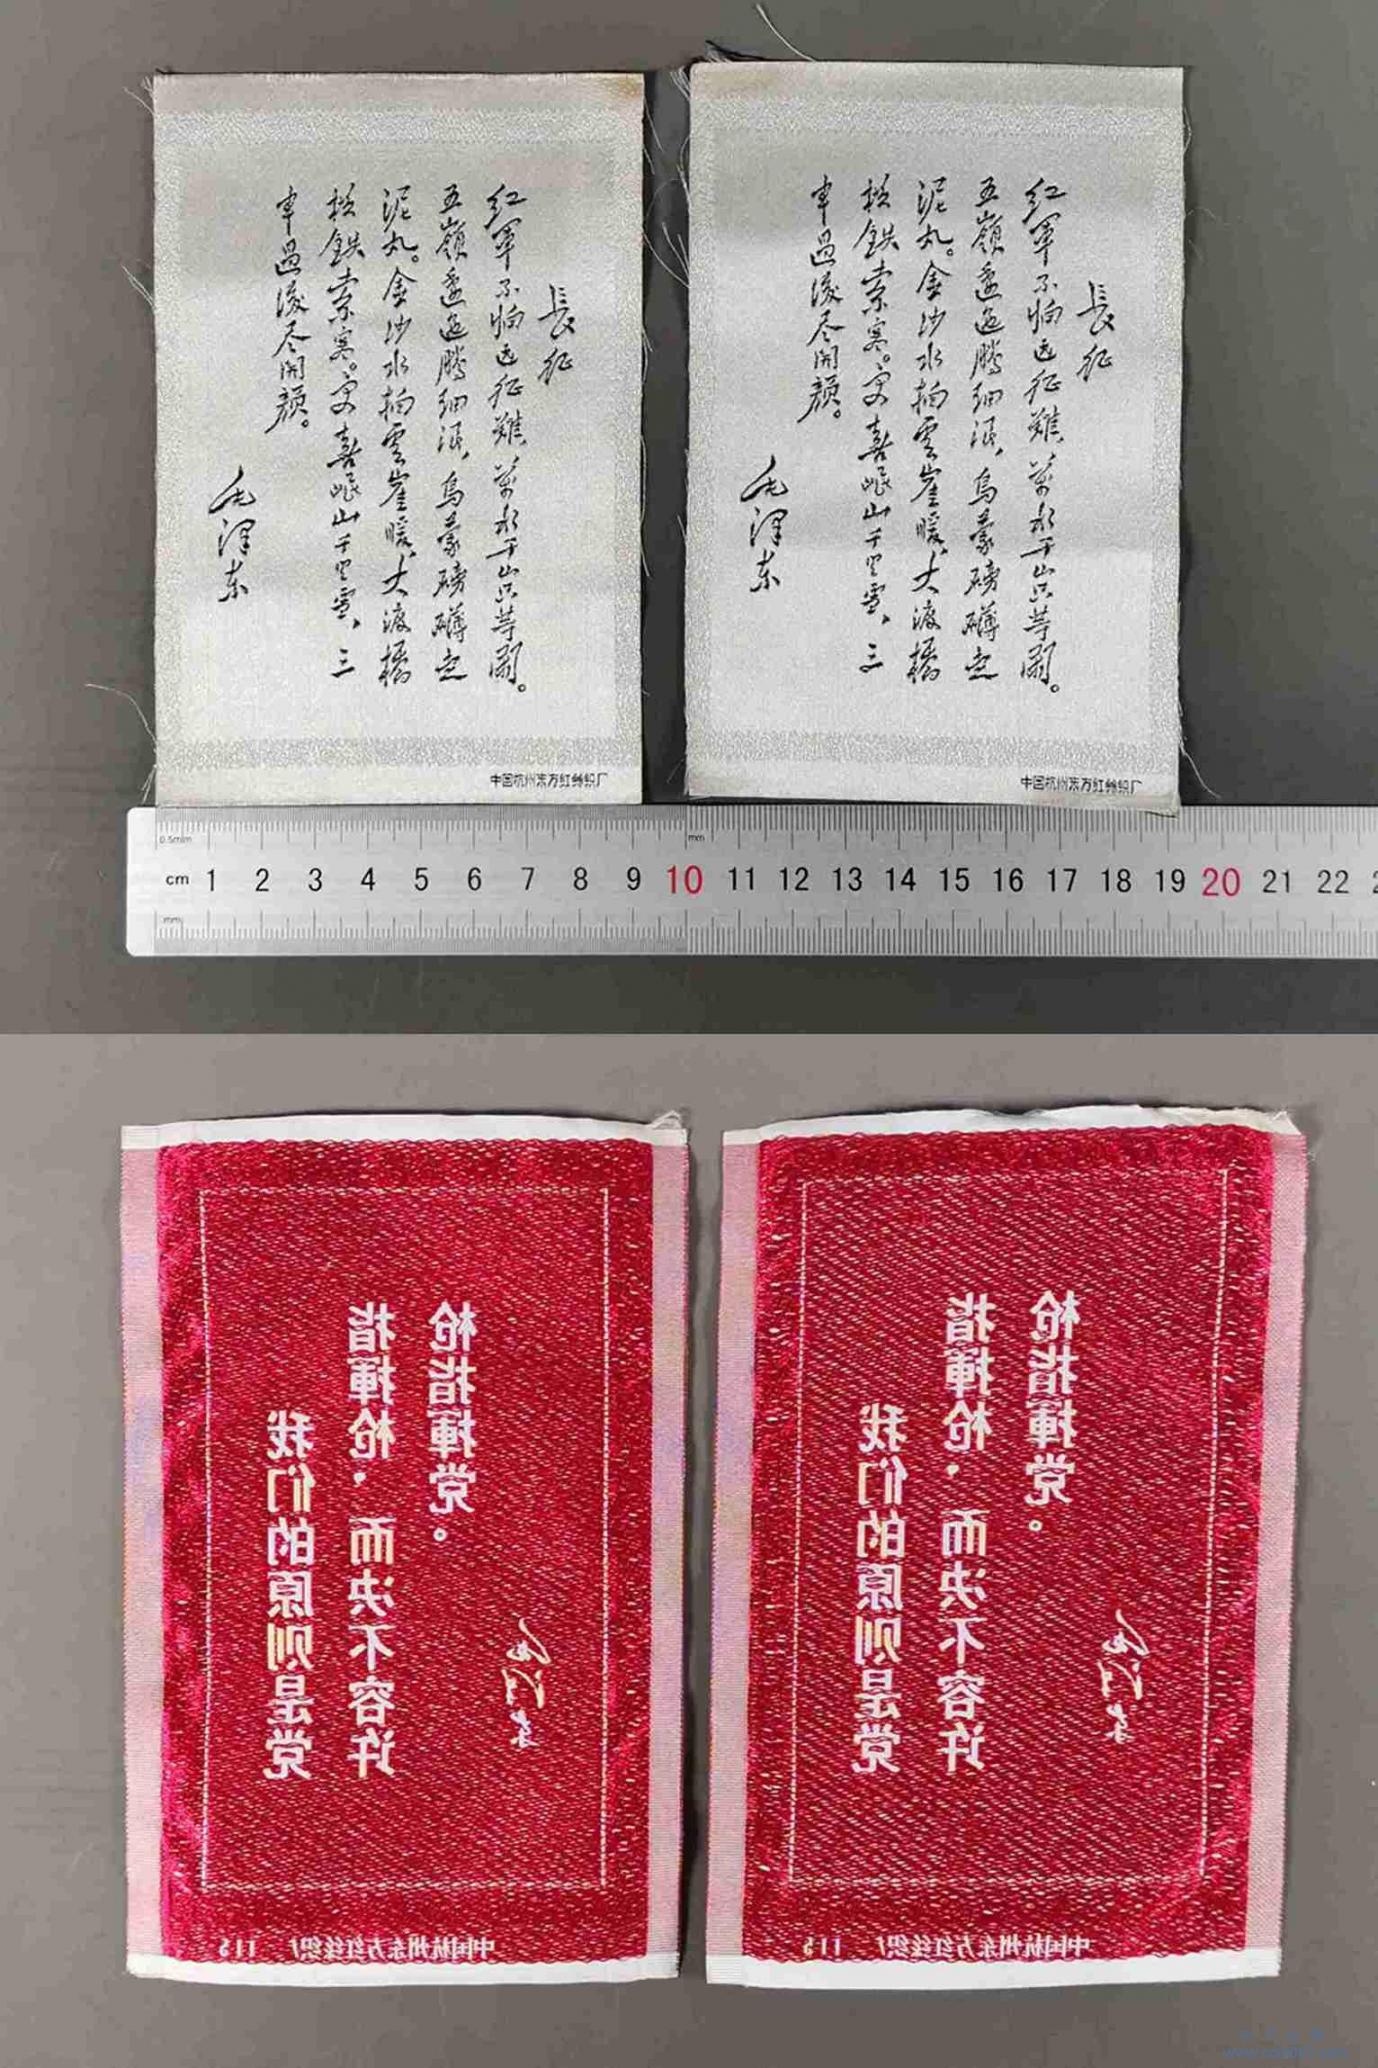 長征
红軍不怕远征難,萬水千山只等閑。
五嶺逶迤腾细浪,烏蒙磅礴走
泥丸。金沙水拍雲崖暖,大渡橋
横鉄索寒。更喜岷山千里雪,三
軍過後尽開颜。
毛澤东
中国杭州东方红丝织厂
長征
红軍不怕远征難,萬水千山只等閑。
五嶺逶迤腾细浪,烏蒙磅礴走
泥丸。金沙水拍雲崖暖,大渡橋
横鉄索寒。更喜岷山千里雪,三
軍過後尽開颜。
毛澤东
中国杭州东方红丝织厂
0.5mm
mm
cm 1 2 3 4 5 6 7 8 9 10 11 12 13 14 15 16 17 18 19 20 21 22
mm
我们的原则是党
指揮枪,而决不容许
枪指揮党。
毛泽东
中国杭州东方红丝织厂 115
我们的原则是党
指揮枪,而决不容许
枪指揮党。
毛泽东
中国杭州东方红丝织厂 115